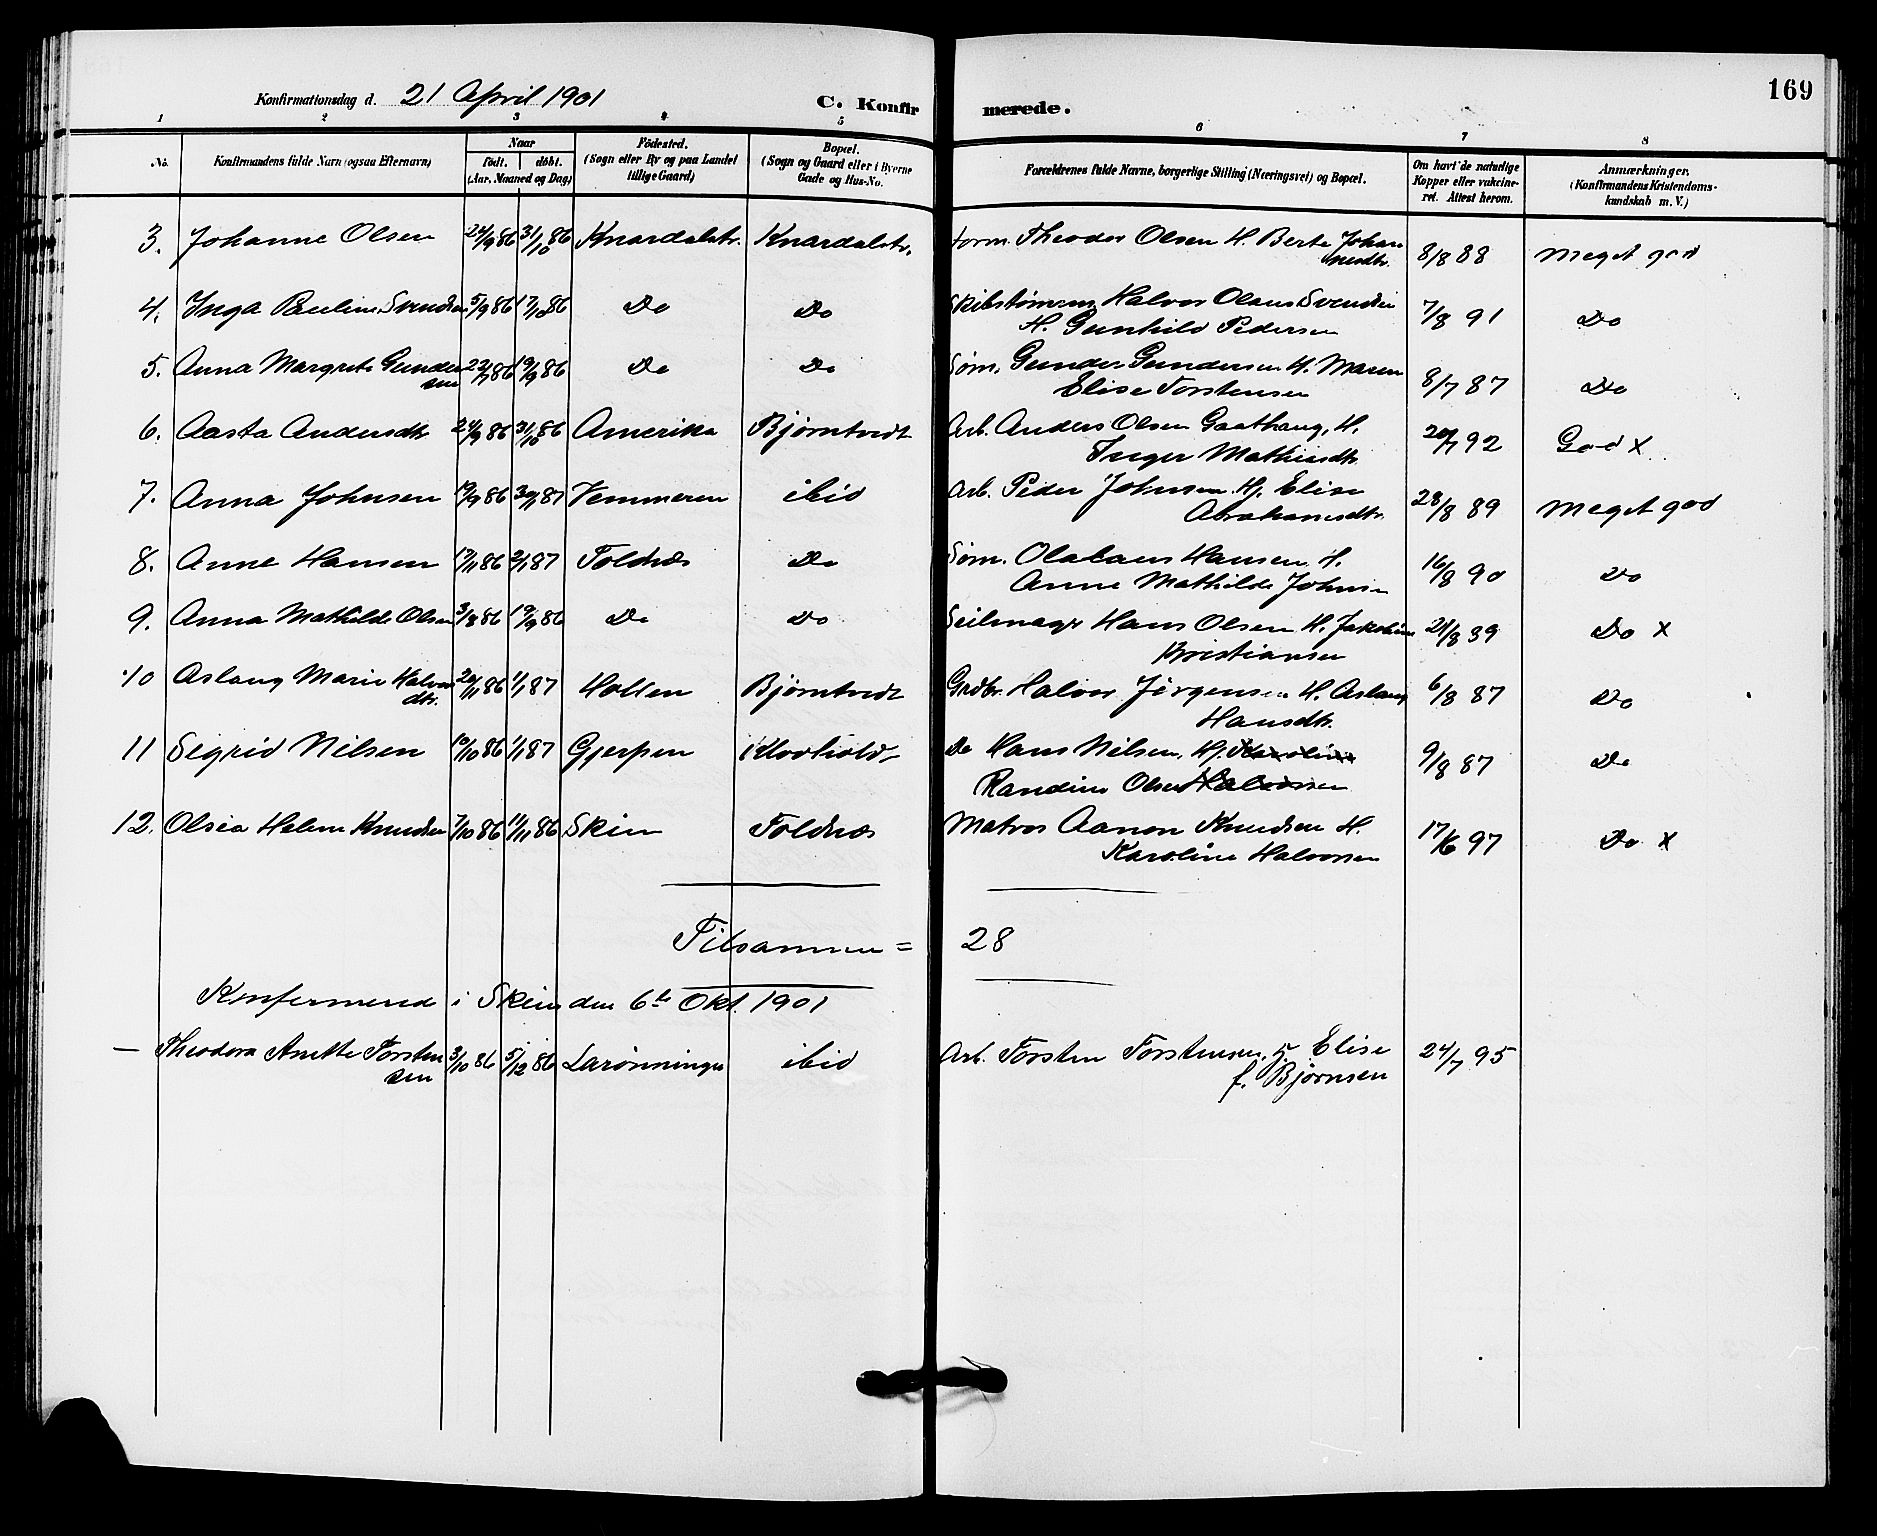 169
Konfirmationsdag d. 21 April 1901 C. Konfirmerede.
1 2 3 4 5 6 7 8
No. Konfirmandens fulde Navn (ogsaa Efternavn) Naar Födested. (Sogn eller By og paa Landet tillige Gaard) Bopæl. (Sogn og Gaard eller i Byerne Gade og Hus-No. Forældrenes fulde Navne, borgerlige Stilling (Næringsvei) og Bopæl. Om havt de naturlige Kopper eller vakcineret. Attest herom. Anmærkninger. (Konfirmandens Kristendomskundskab m. V.)
födt. döbt. (Aar, Maaned og Dag)
3. Johanne Olsen 24/9 86 31/10 86 Knardalstr. Knardalstr. Form. Theodor Olsen H. Berte Johannesdtr. 8/8 88 Meget god
4. Inga Pauline Svendsen 5/9 86 17/10 86 Do Do Skibstømrm. Halvor Olaus Svendsen
H. Gunhild Pedersen 7/8 91 Do
5. Anna Margrete Gundersen 22/7 86 19/9 86 Do Do Søm. Gunder Gundersen H. Maren
Elise Torstensen 8/7 87 Do
6. Aasta Andersdtr. 24/9 86 31/10 86 Amerika Bjørntvedt Arb. Anders Olsen Gaathaug, H.
Inger Mathisdtr. 20/7 92 God x
7. Anna Johnsen 19/9 86 30/1 87 Vemmeren ibid Arb. Peder Johnsen Hj. Elise
Abrahamsdtr. 28/8 89 Meget god
8. Anne Hansen 17/11 86 2/1 87 Toldnæs Do Søm. Olalaus Hansen H.
Anne Mathilde Johnsen 16/8 90 Do
9. Anna Mathilde Olsen 3/8 86 19/9 86 Do Do Seilmager Hans Olsen H. Jakobine
Kristiansen 21/8 39 Do x
10 Aslaug Marie Halvorsdtr. 20/11 86 1/1 87 Holten Bjørntvedt Grdbr. Halvor Jørgensen H. Aslaug
Hansdtr. 6/8 87 Do
11 Sigrid Nilsen 10/10 86 1/1 87 Gjerpen Klovholdt Do Hans Nilsen, Hj. Karoline
Randine Olsen Halvorsen 9/8 87 Do
12. Olsea Helene Knudsen 7/10 86 11/11 86 Skien Toldnæs Matros Aanon Knudsen H.
Karoline Halvorsen 17/6 97 Do x
Tilsammen = 28
Konfermered i Skien den 6te Okt. 1901
— Theodora Anette Torstensen 3/10 86 5/12 86 Larønningen ibid Arb. Torsten Torstensen, Hj. Elise
f. Bjørnsen 24/7 95